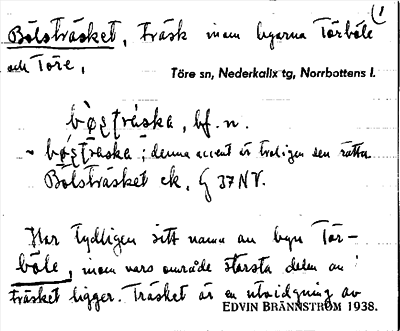 1
Bölsträsket, träsk inom byarna Törböle
och Töre,
Töre sn, Nederkalix tg, Norrbottens l.
bf. n.
denna accent är troligen den rätta
Bölsträsket ek. G 37 NV.
Har tydligen sitt namn av byn Tör-
böle, inom vars område största delen av
träsket ligger. Träsket är en utvidgning av
EDVIN BRÄNNSTRÖM 1938.